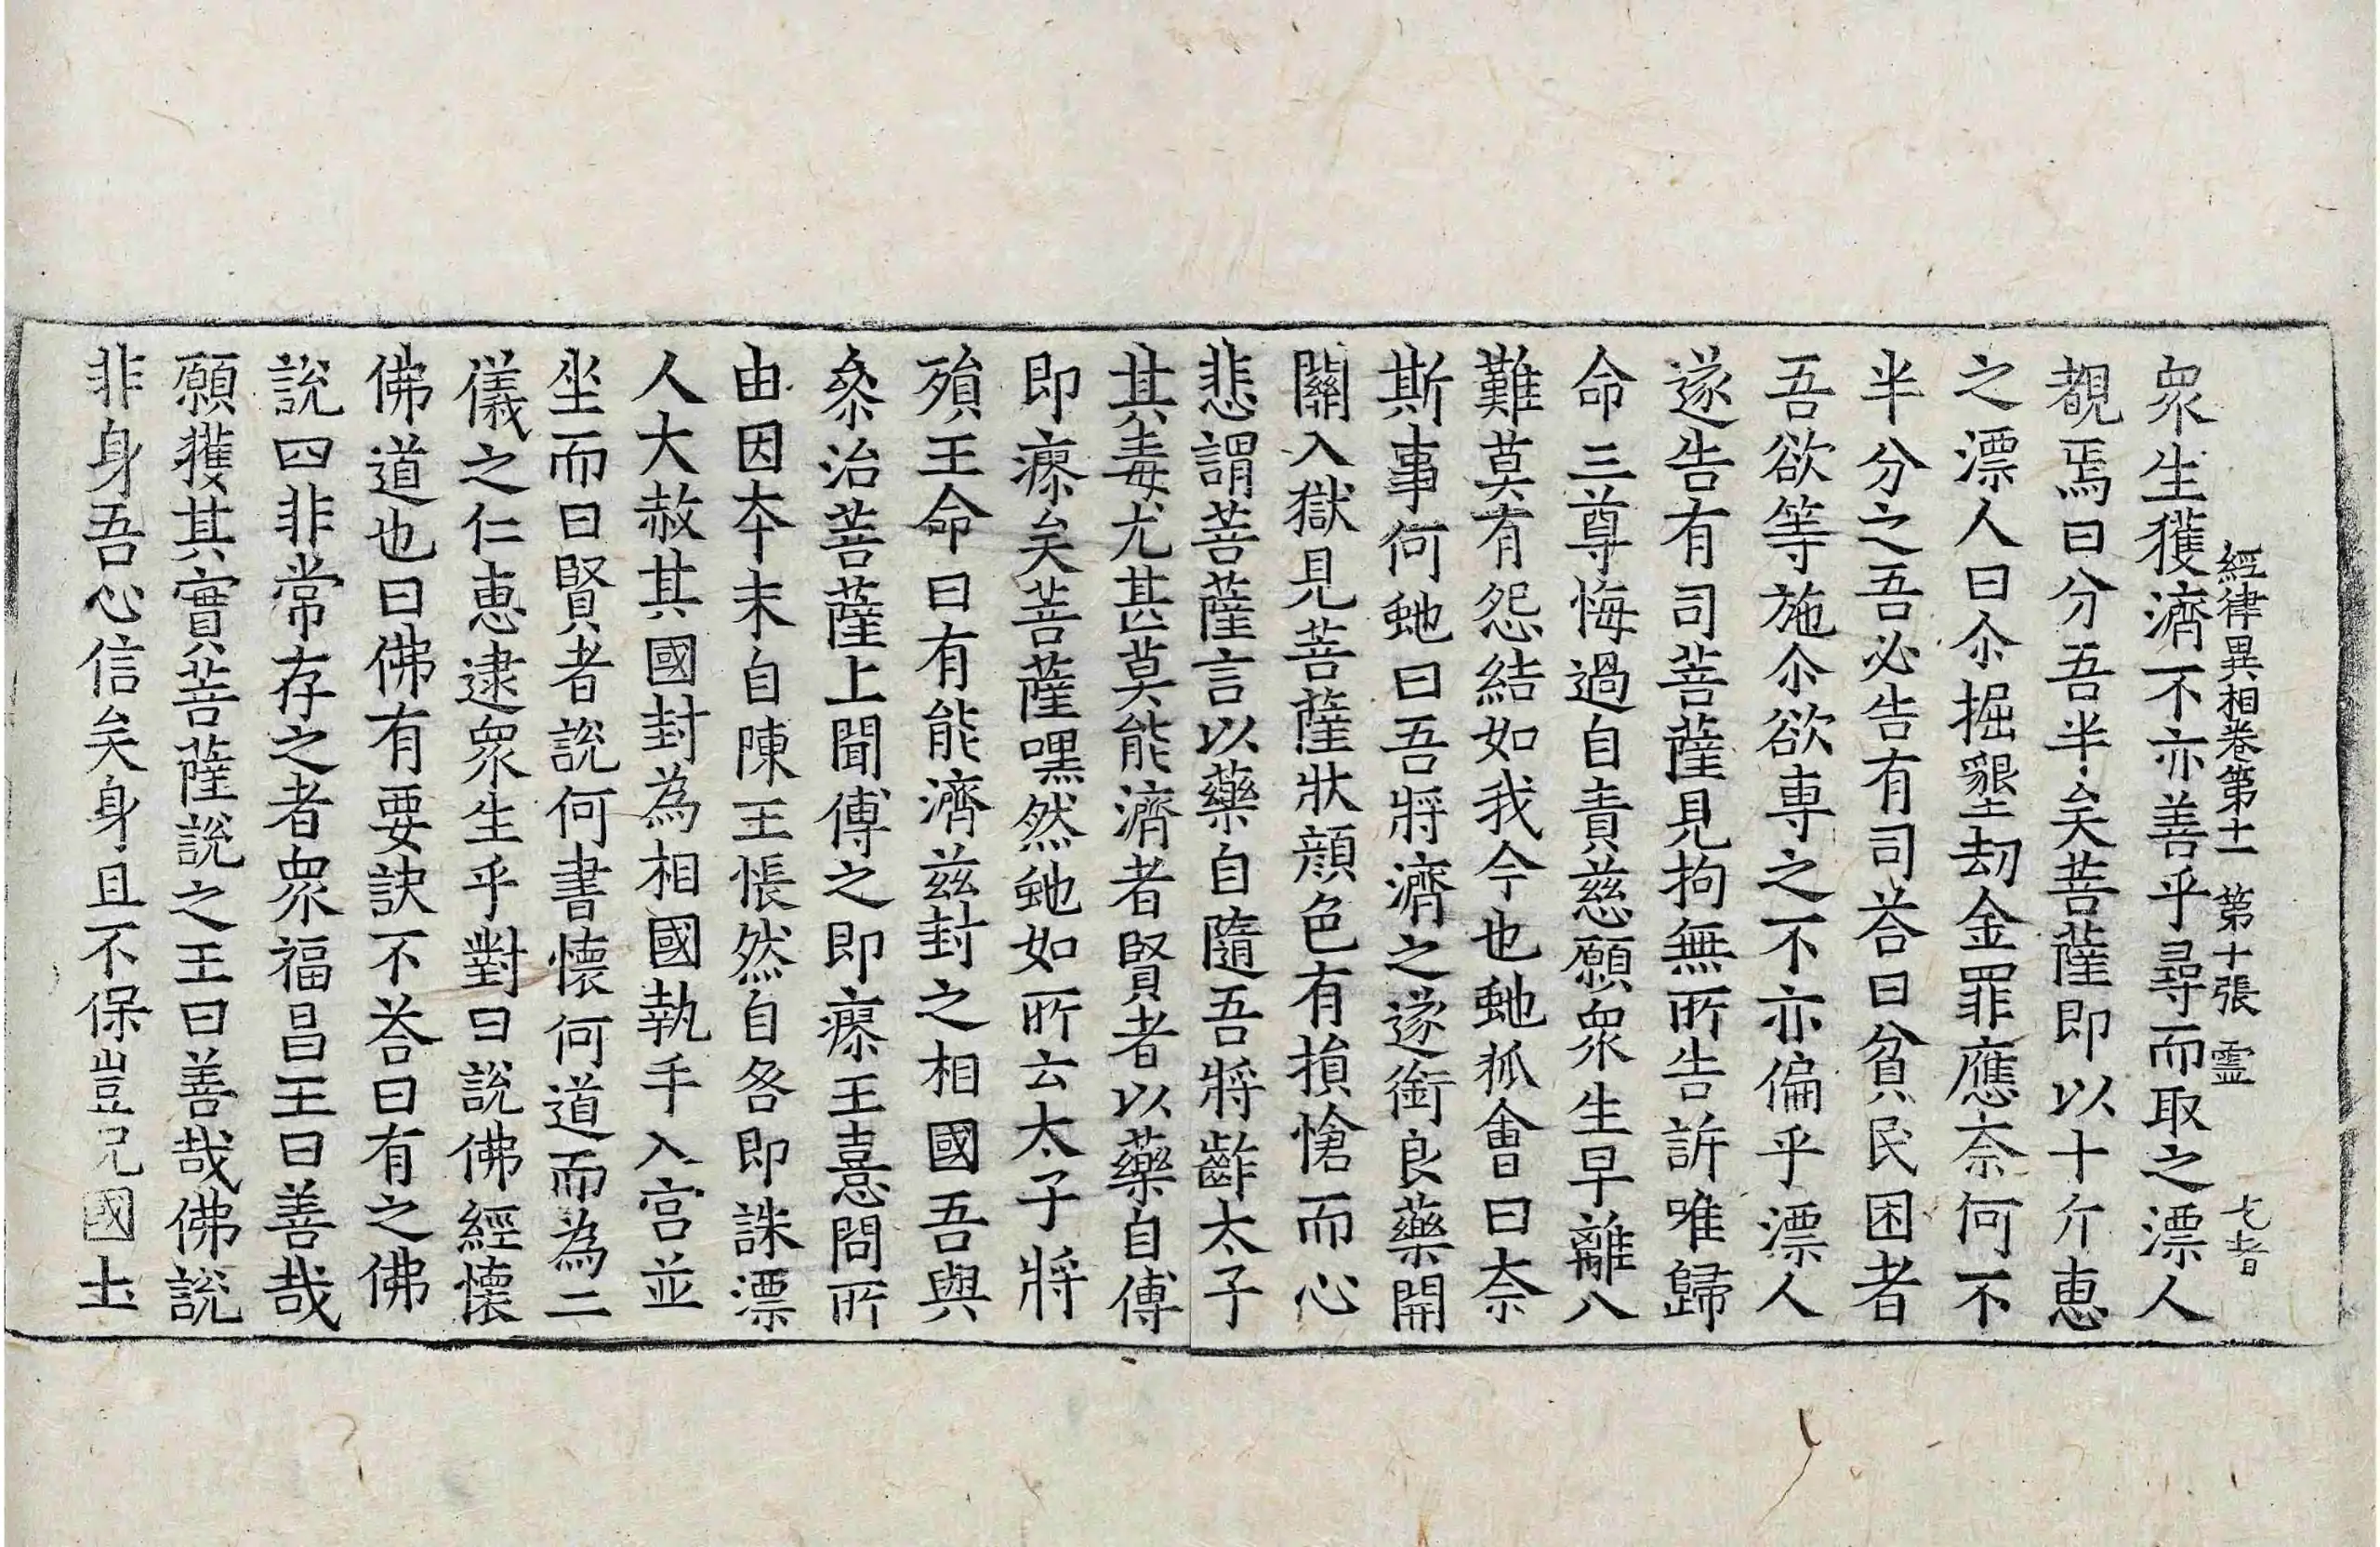 經律異相卷第十一 第十張 靈
衆生獲濟不亦善乎尋而取之漂人
覩焉曰分吾半矣菩薩即以十斤惠
之漂人曰尒掘墾劫金罪應柰何不
半分之吾必告有司荅曰貧民困者
吾欲等施尒欲専之不亦偏乎漂人
遂告有司菩薩見拘無所告訴唯歸
命三尊悔過自責慈願衆生早離八
難莫有怨結如我今也虵狐會曰柰
斯事何虵曰吾將濟之遂銜良藥開
關入獄見菩薩狀顔色有損愴而心
悲謂菩薩言以藥自隨吾將齚太子
其毒尤甚莫能濟者賢者以藥自傅
即瘳矣菩薩嘿然虵如所云太子將
殞王命曰有能濟兹封之相國吾與
叅治菩薩上聞傅之即瘳王憙問所
由因夲末自陳王悵然自咎即誅漂
人大赦其國封為相國執手入宫並
坐而曰賢者說何書懷何道而為二
儀之仁惠逮衆生乎對曰說佛經懷
佛道也曰佛有要訣不荅曰有之佛
說四非常存之者衆福昌王曰善哉
願獲其實菩薩說之王曰善哉佛說
非身吾心信矣身且不保豈况國土